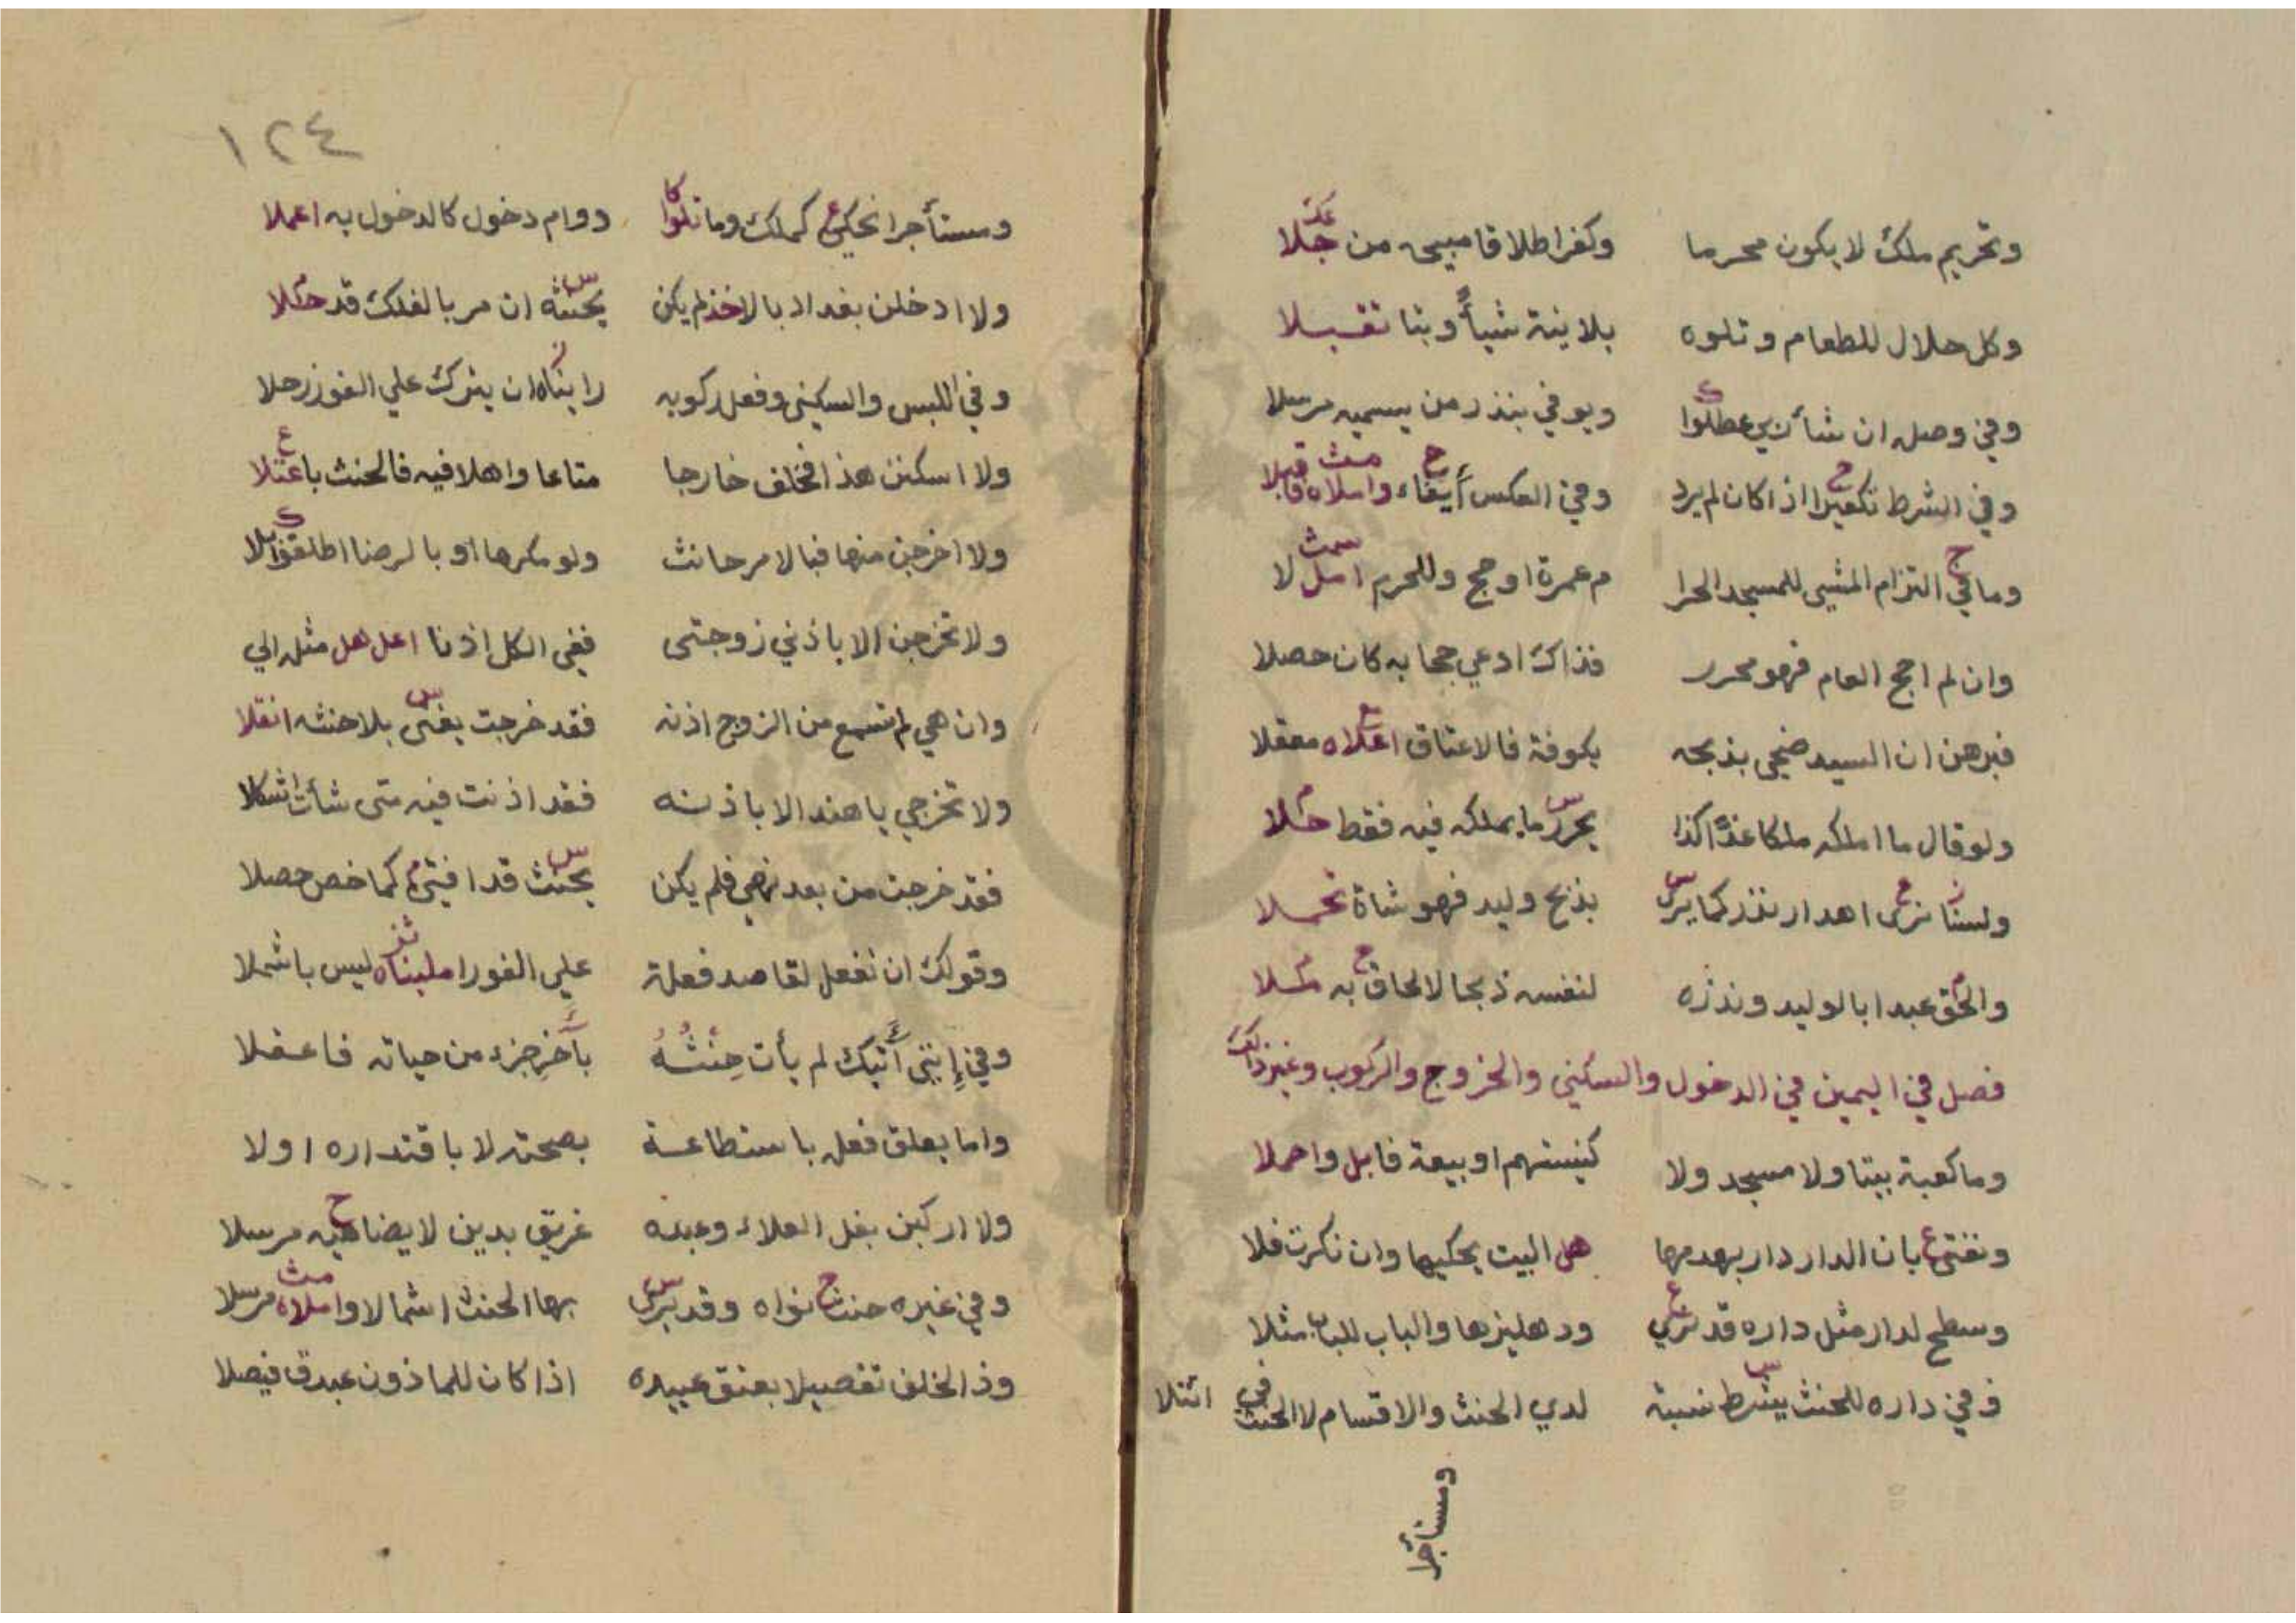 وتحريم ملك لا يكون محرما وكفر اطلاقا مبيحه من جلا
وكل حلال للطعام وتلوه بلا ينة شيأ وبتا تقبلا
وفي وصل ان شأ نري عطلوا ويوفي بنذر من يسميه مرسلا
وفي الشرط تكفيرا اذا كان لم يرد وفي العكس أيفاء واملاه قابلا
وما في التزام المشي للمسجد الحرا م عمرة او حج وللحرم امل لا
وان لم احج العام فهو محرر فذاك ادعي حجا به كان حصلا
فبرهن ان السيد ضحى بذبحه بكوفة فالاعتاق اعلاه معقلا
ولو قال ما املكه ملكا غدًا كذا يحرر ما يملكه فيه فقط حلا
ولسنا نرى اهدار نذر كما يرى بذبح وليد فهو شاة تحملا
والحق عبدا بالوليد ونذره لنفسه ذبحا لا لحاق به ملا
فصل في اليمين في الدخول والسكني والخروج والركوب وغير ذلك
وما كعبة بيتا ولا مسجد ولا كنيستهم او بيعة فابل واحملا
ونفتي بان الدار دار بهدمها هل البيت يحكيها وان نكرت فلا
وسطح لدار مثل داره قد نري ودهليزها والباب للباب مثلا
وفي داره للحنث يشرط نسبة لدي الحنث والاقسام لا الحنث في ائتلا
ومستأجرا
١٢٤
ومستأجرا نحكي كملك وما تلوا دوام دخول كالدخول به اعملا
ولا ادخلن بغداد بالاخذ لم يكن يحنثه ان مر بالفلك قد حلا
وفي اللبس والسكنى وفعل ركوبه رايناه ان يترك علي الفوز رحلا
ولا اسكنن هذا فخلف خارجا متاعا واهلا فيه فالحنث باعتلا
ولا اخرجن منها فبالامر حانث ولو مكرها او بالرضا اطلقوا
ولا تخرجن الا باذني زوجتى ففي الكل اذنا اعل هل مثل الي
وان هي لم تسمع من الزوج اذنه فقد خرجت يفتى بلا حنثه انقلا
ولا تخرجي يا هند الا باذنه فقد اذنت فيه متى شأت اشكلا
فقد خرجت من بعد نهي فلم يكن يحنث قد افتى كما خص حصلا
وقولك ان تفعل لقاصد فعلة علي الفور املیناه ليس باشملا
وفي إنني آتيك لم يأت حِنْثُهُ بآخرِ جزء من حياته فاعقلا
واما يعلق فعل باستطاعة بصحته لا باقتداره اولا
ولا اركبن بغل العلاء وعبده غريق بدين لا يضاهيه مرسلا
وفي غيره حنث نواه وقد يرى بها الحنث اشمالا واملاه مرسلا
وذ الخلف تفصيلا بعتق عبيده اذا كان للماذون عبدق فيصلا